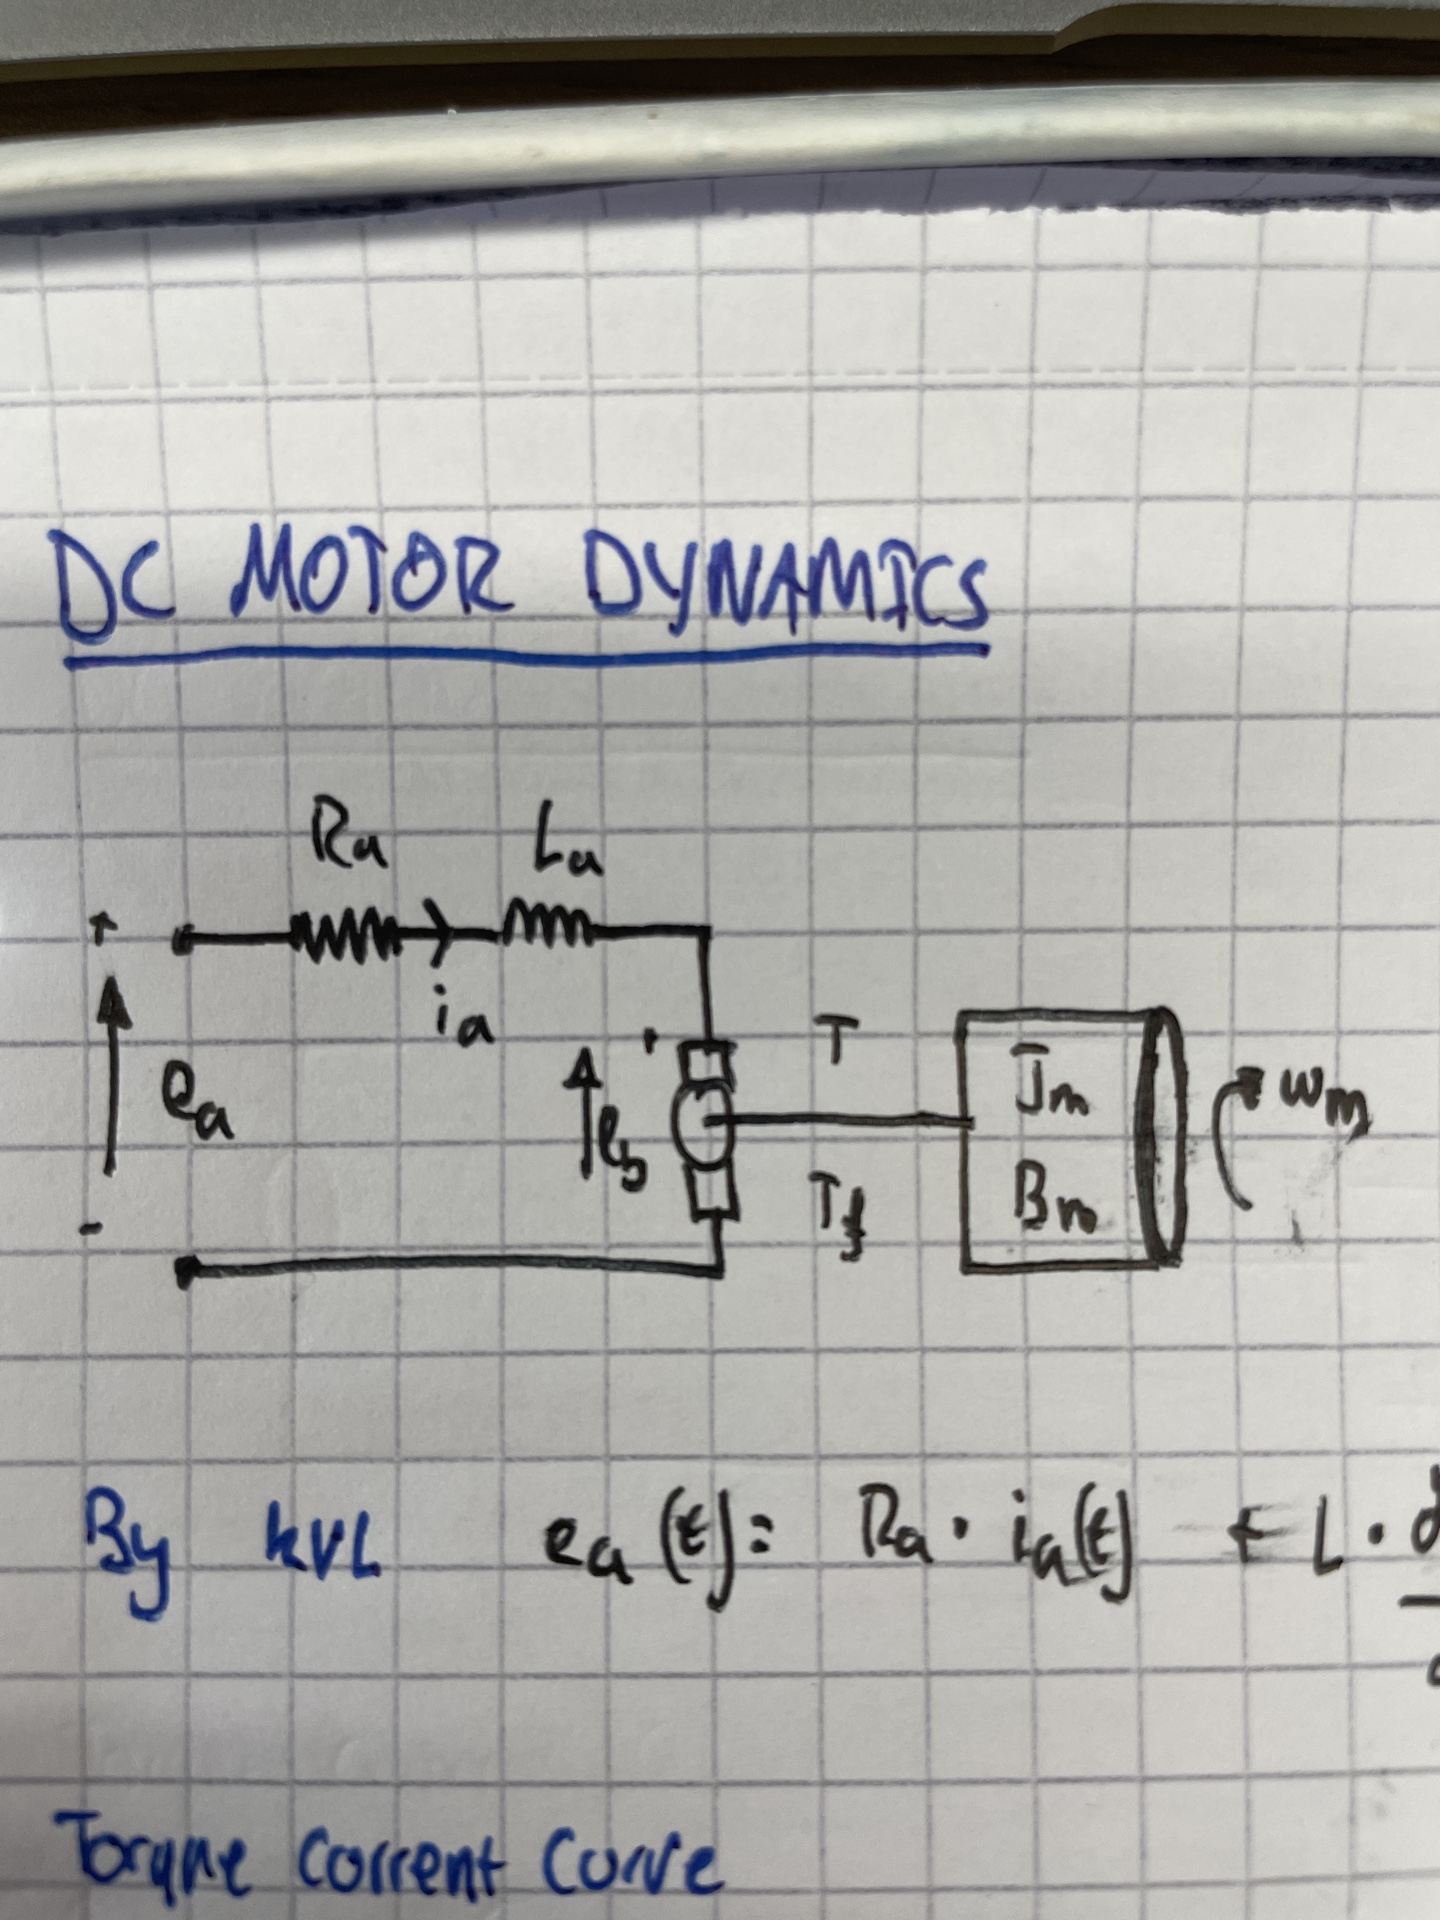 DC MOTOR DYNAMICS
Ra La
+
ia
ea
-
+
eb
T
Tf
Jm
Bm
wm
By kVL ea(t)= Ra · ia(t) + L · d
Torque Current Curve